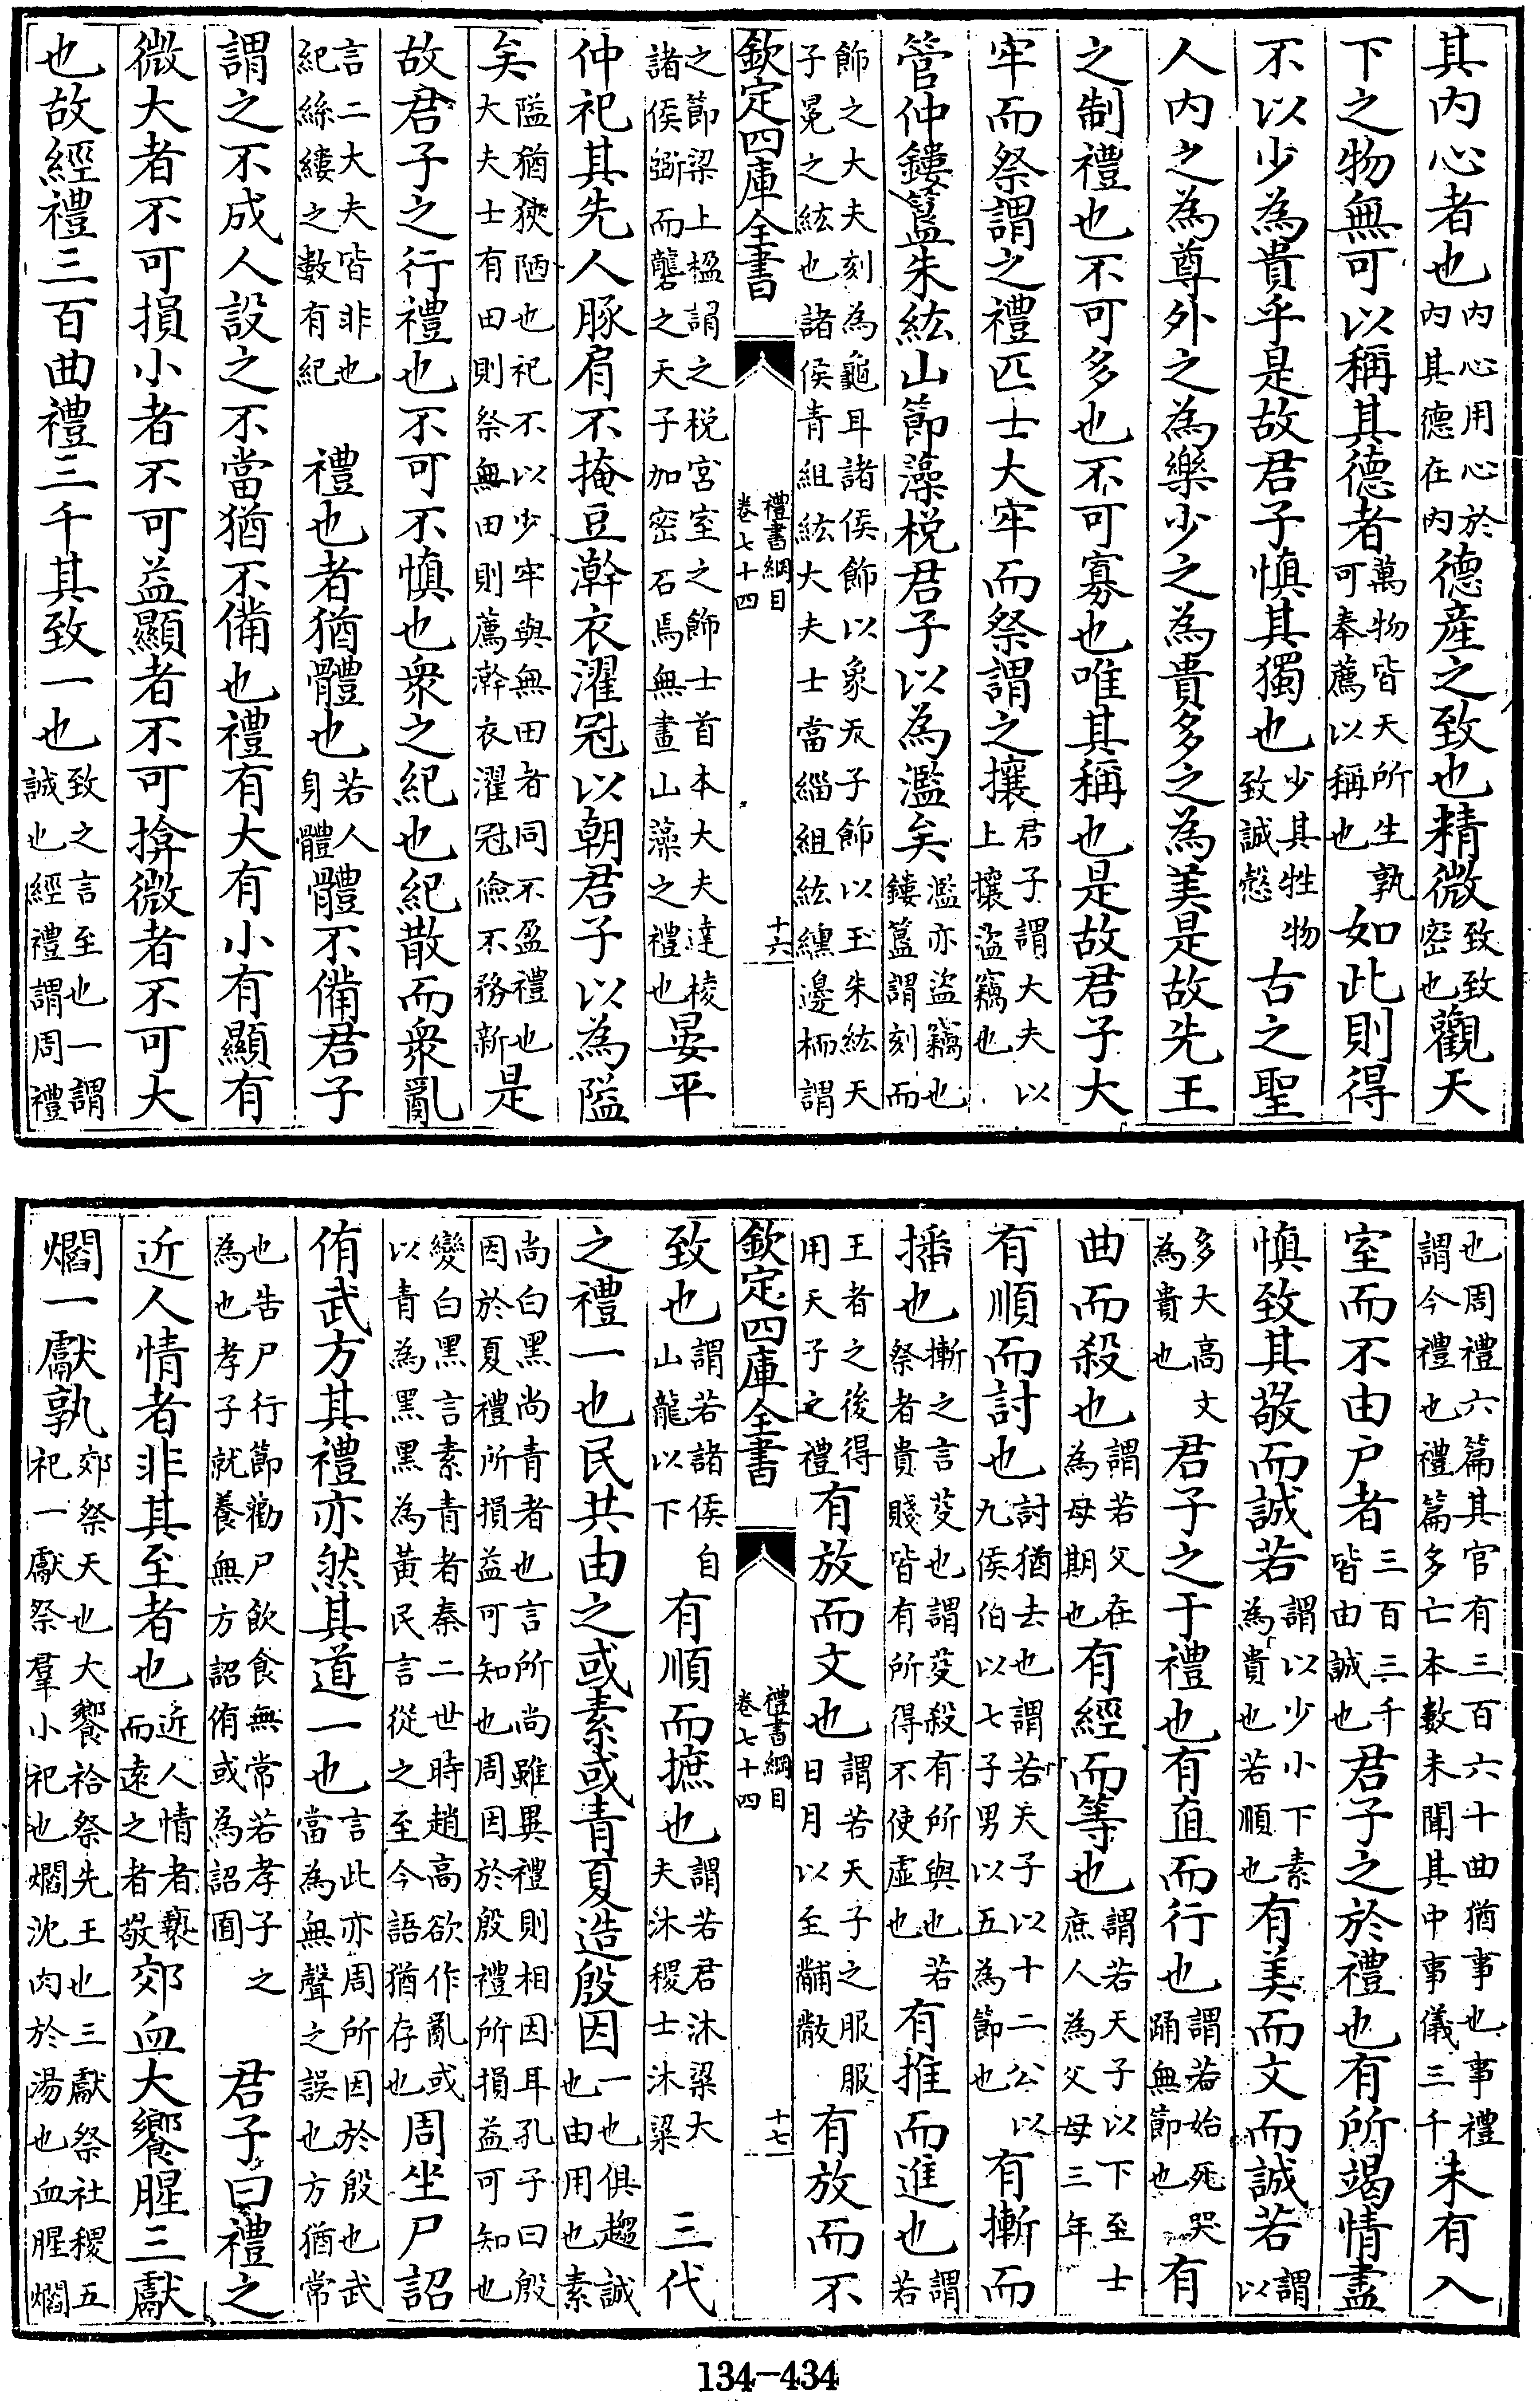 其内心者也内心用心於内其德在内德産之致也精微致致密也觀天
下之物無可以稱其德者萬物皆天所生孰可奉薦以稱也如此則得
不以少為貴乎是故君子慎其獨也少其牲物致誠慤古之聖
人内之為尊外之為樂少之為貴多之為美是故先王
之制禮也不可多也不可寡也唯其稱也是故君子大
牢而祭謂之禮匹士大牢而祭謂之攘君子謂大夫以上攘盜竊也
管仲鏤簋朱紘山節藻梲君子以為濫矣濫亦盜竊也鏤簋謂刻而
飾之大夫刻為龜耳諸侯飾以象天子飾以玉朱紘天子冕之紘也諸侯青組紘大夫士當緇組紘纁邊栭謂
欽定四庫全書 禮書綱目 卷七十四 十六
之節梁上楹謂之梲宮室之飾士首本大夫達棱諸侯斲而礱之天子加密石焉無畫山藻之禮也晏平
仲祀其先人豚肩不掩豆澣衣濯冠以朝君子以為隘
矣隘猶狹陋也祀不以少牢與無田者同不盈禮也大夫士有田則祭無田則薦澣衣濯冠儉不務新是
故君子之行禮也不可不慎也衆之紀也紀散而衆亂
言二大夫皆非也紀絲縷之數有紀 禮也者猶體也若人身體體不備君子
謂之不成人設之不當猶不備也禮有大有小有顯有
微大者不可損小者不可益顯者不可揜微者不可大
也故經禮三百曲禮三千其致一也致之言至也一謂誠也經禮謂周禮
也周禮六篇其官有三百六十曲猶事也事禮謂今禮也禮篇多亡本數未聞其中事儀三千未有入
室而不由户者三百三千皆由誠也君子之於禮也有所竭情盡
慎致其敬而誠若謂以少小下素為貴也若順也有美而文而誠若謂以
多大高文為貴也君子之于禮也有直而行也謂若始死哭踊無節也有
曲而殺也謂若父在為母期也有經而等也謂若天子以下至士庶人為父母三年
有順而討也討猶去也謂若天子以十二公以九侯伯以七子男以五為節也有摲而
播也摲之言芟也謂芟殺有所與也若祭者貴賤皆有所得不使虛也有推而進也謂若
王者之後得用天子之禮有放而文也謂若天子之服服日月以至黼黻有放而不
欽定四庫全書 禮書綱目 卷七十四 十七
致也謂若諸侯自山龍以下有順而摭也謂若君沐粱大夫沐稷士沐粱 三代
之禮一也民共由之或素或青夏造殷因一也俱趨誠也由用也素
尚白黑尚青者也言所尚雖異禮則相因耳孔子曰殷因於夏禮所損益可知也周因於殷禮所損益可知也
變白黑言素青者秦二世時趙高欲作亂或以青為黑黑為黃民言從之至今語猶存也周坐尸詔
侑武方其禮亦然其道一也言此亦周所因於殷也武當為無聲之誤也方猶常
也告尸行節勸尸飲食無常若孝子之為也孝子就養無方詔侑或為詔囿 君子曰禮之
近人情者非其至者也近人情者褻而遠之者敬郊血大饗腥三獻
爓一獻孰郊祭天也大饗祫祭先王也三獻祭社稷五祀一獻祭羣小祀也爓沈肉於湯也血腥爓
134-434